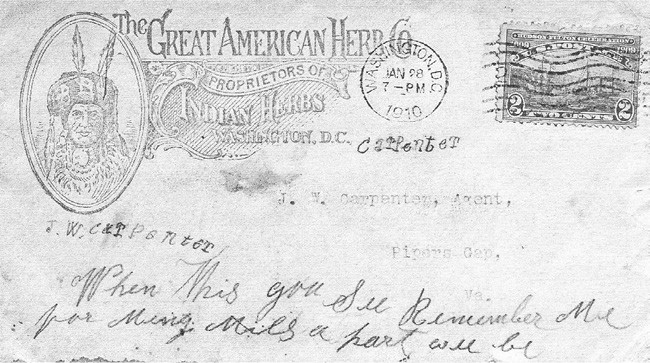 The GREAT AMERICAN HERB Co.
PROPRIETORS OF
INDIAN HERBS
WASHINGTON, D.C.
WASHINGTON, D.C.
JAN 28
7-PM
1910
HUDSON-FULTON CELEBRATION
1609 1909
2 TWO CENTS 2
Carpenter
J. W. Carpenter, Agent,
J. W. Carpenter
Pipers Gap,
Va.
When this you See Remember Me
for Meny Mils a part wee be